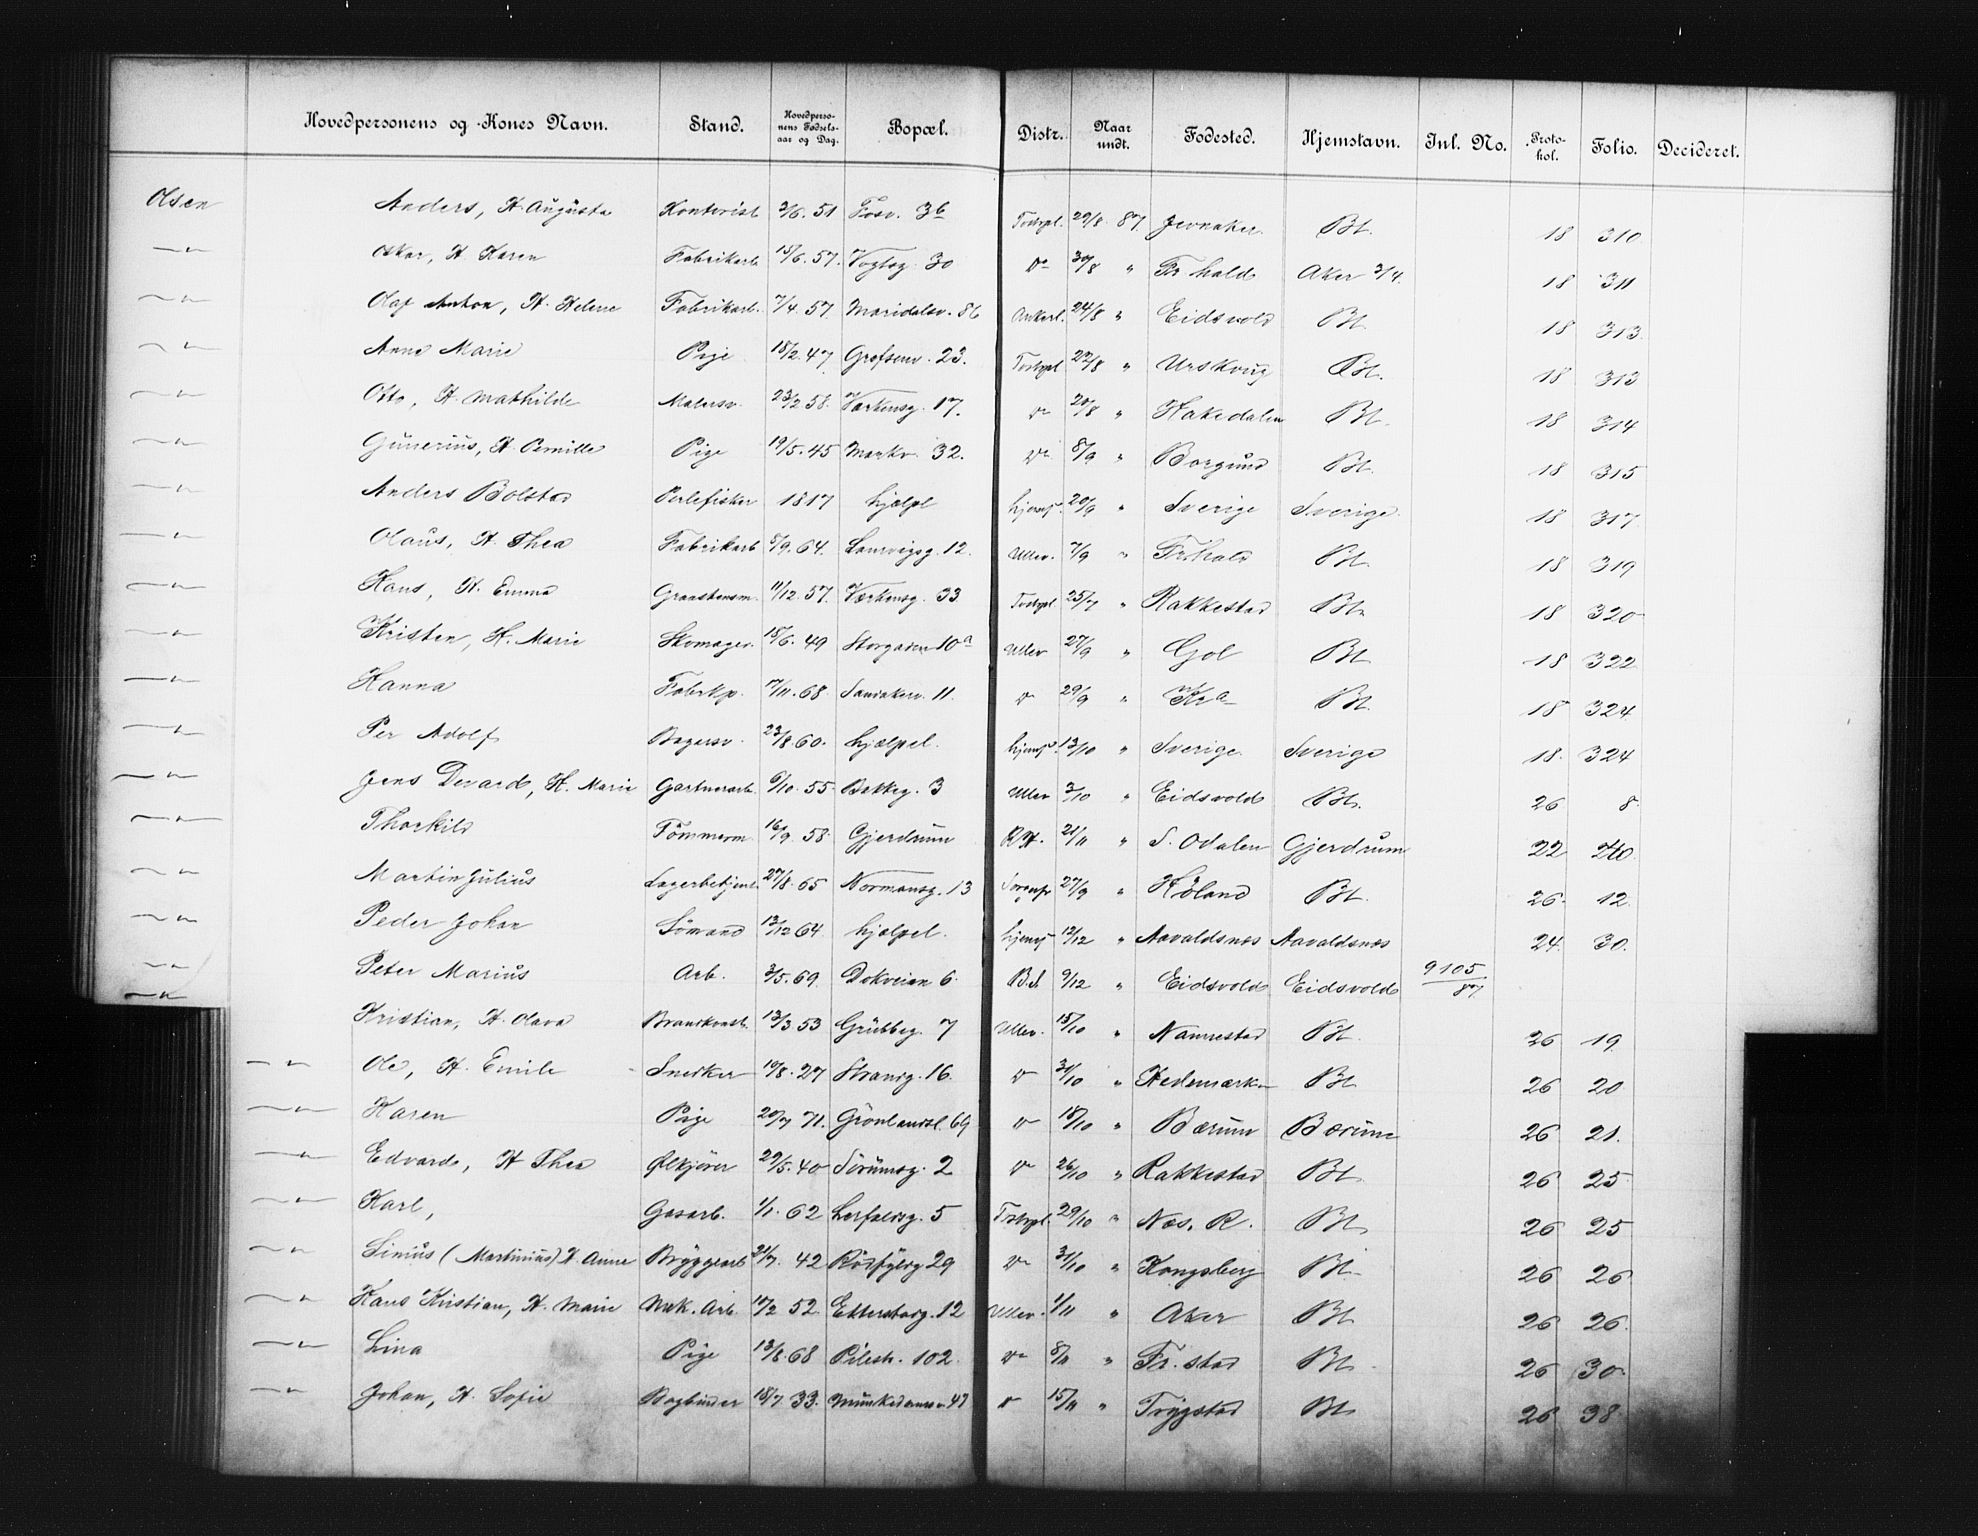 Hovedpersonens og Kones Navn. Stand. Hovedperso-nens Fødsels-aar og Dag. Bopæl. Distr. Naar undt. Fødested. Hjemstavn. Inl. No. Proto-kol. Folio. Decideret.
Olsen Anders, H. Augusta Kontorist 2/6. 51 Fosv. 36 Tostrpl. 29/8 87. Jevnaker Bt. 18 310
—"— Oskar, H. Karen Fabrikarb. 15/6. 57. Vogtsg. 30 Do 30/8 " Fr.hald Aker 3/4. 18 311
—"— Olaf Anton, H. Helene Fabrikarb. 7/4. 57. Maridalsv. 86 Ankerl. 24/8 " Eidsvold Bt. 18 313
—"— Anne Marie Pige 18/2. 47 Grefsenv. 23. Tostrpl 22/8 " Urskoug Bt. 18 313
—"— Otto, H. Mathilde Malersv. 23/2 58. Værkensg. 17. Do 20/8 " Hakedalen Bt. 18 314
—"— Gunerius, H. Pernille Pige 19/5. 45 Markv. 32. Do 8/9 " Borgund Bt. 18 315
—"— Anders Bolstad Perlefisker 1817 hjælpl hjemsf. 20/9 " Sverige Sverige 18 317
—"— Olaus, H. Thea Fabrikarb 5/9. 64. Laurvigsg. 12. Ullev. 7/9 " Fr.hald Bt. 18 319
—"— Hans, H. Emma Graastensm. 11/12. 57. Værkensg. 33 Tostrpl 25/7 " Rakkestad Bt. 18 320
—"— Kristen, H. Marie Skomager. 18/6. 49 Storgaden 10a Ullev 27/9 " Gol Bt 18 322
—"— Hanna Fabrkp. 17/11. 68. Sandakerv. 11. Do 29/9 " Kra Bt. 18 324
—"— Per Adolf Bagersv. 23/8 60. hjælpel. hjemsf. 13/10 " Sverige Sverige 18. 324
—"— Jens Devard, H. Marie Gartnerarb. 6/10. 55 Bakkeg. 3 Ullev 3/10 " Eidsvold Bt. 26 8
—"— Thorkild Tømmerm 16/9. 58. Gjerdrum R.H. 21/11 " S. Odalen Gjerdrum 22 240
—"— Martin Julius Lagerbetjent. 27/8. 65 Normansg. 13 27/9 " Høland Bt. 26. 12.
—"— Peder Johan Sømand 13/12 64 hjælpel. hjemsf 12/12 " Aavaldsnes Aavaldsnes 24. 30.
—"— Peter Marius Arb. 3/5. 69. Dokveien 6. B.S 9/12 " Eidsvold Eidsvold 9105/87
—"— Kristian, H. Olava Brandkonst. 13/3 53 Grubbeg. 7 Ullev. 15/10 " Nannestad Bt. 26 19.
—"— Ole, H. Emile Snedker 10/8. 27 Strandg. 16. Do 31/10 " Hedemarken Bt. 26 20
—"— Karen Pige 20/7 71. Grønlandsl. 69 Do 18/10 " Bærum Bærum 26 21.
—"— Edvard, H Thea Ølkjører 29/5. 40 Sørumsg. 2 Do 26/10 " Rakkestad Bt. 26 25
—"— Karl, Gasarb. 1/1. 62 Lerfaldsg. 5 Tostrpl. 29/10 " Næs. R. Bt. 26 25
—"— Linius (Martinius) H. Anne Bryggearb 21/7. 42 Rødfylg 29 Do 31/10 " Kongsberg Bt. 26 26
—"— Hans Kristian, H. Marie Mek. Arb 17/2 52. Ettersborg. 12 Ullev. 1/11 " Aker Bt. 26 26.
—"— Lina Pige 13/8. 68 Pilestr. 102. Do 8/11 " Fr. stad Bt. 26 30.
—"— Johan, H. Sofie Bogbinder 18/7 33. Munkedamsv. 47 Do 15/11 " Trygstad Bt. 26 38